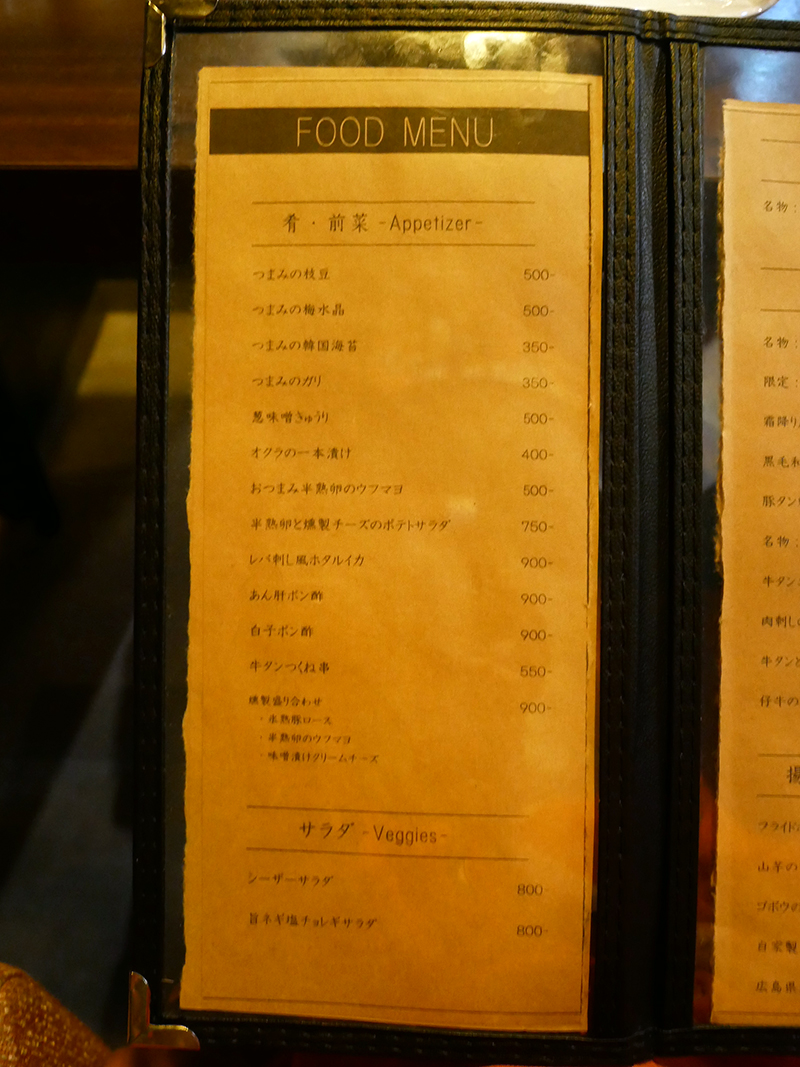 FOOD MENU
肴・前菜 -Appetizer-
つまみの枝豆 500-
つまみの梅水晶 500-
つまみの韓国海苔 350-
つまみのガリ 350-
葱味噌きゅうり 500-
オクラの一本漬け 400-
おつまみ半熟卵のウフマヨ 500-
半熟卵と燻製チーズのポテトサラダ 750-
レバ刺し風ホタルイカ 900-
あん肝ポン酢 900-
白子ポン酢 900-
牛タンつくね串 550-
燻製盛り合わせ 900-
・半熟豚ロース
・半熟卵のウフマヨ
味噌漬けクリームチーズ
サラダ -Veggies-
シーザーサラダ 800-
旨ネギ塩チョレギサラダ 800-
名物：
名物：
限定：
霜降り
黒毛和
豚タン
名物：
牛タン
肉刺し
牛タンと
仔牛の
揚
フライド
山芋の
ゴボウの
自家製
広島県